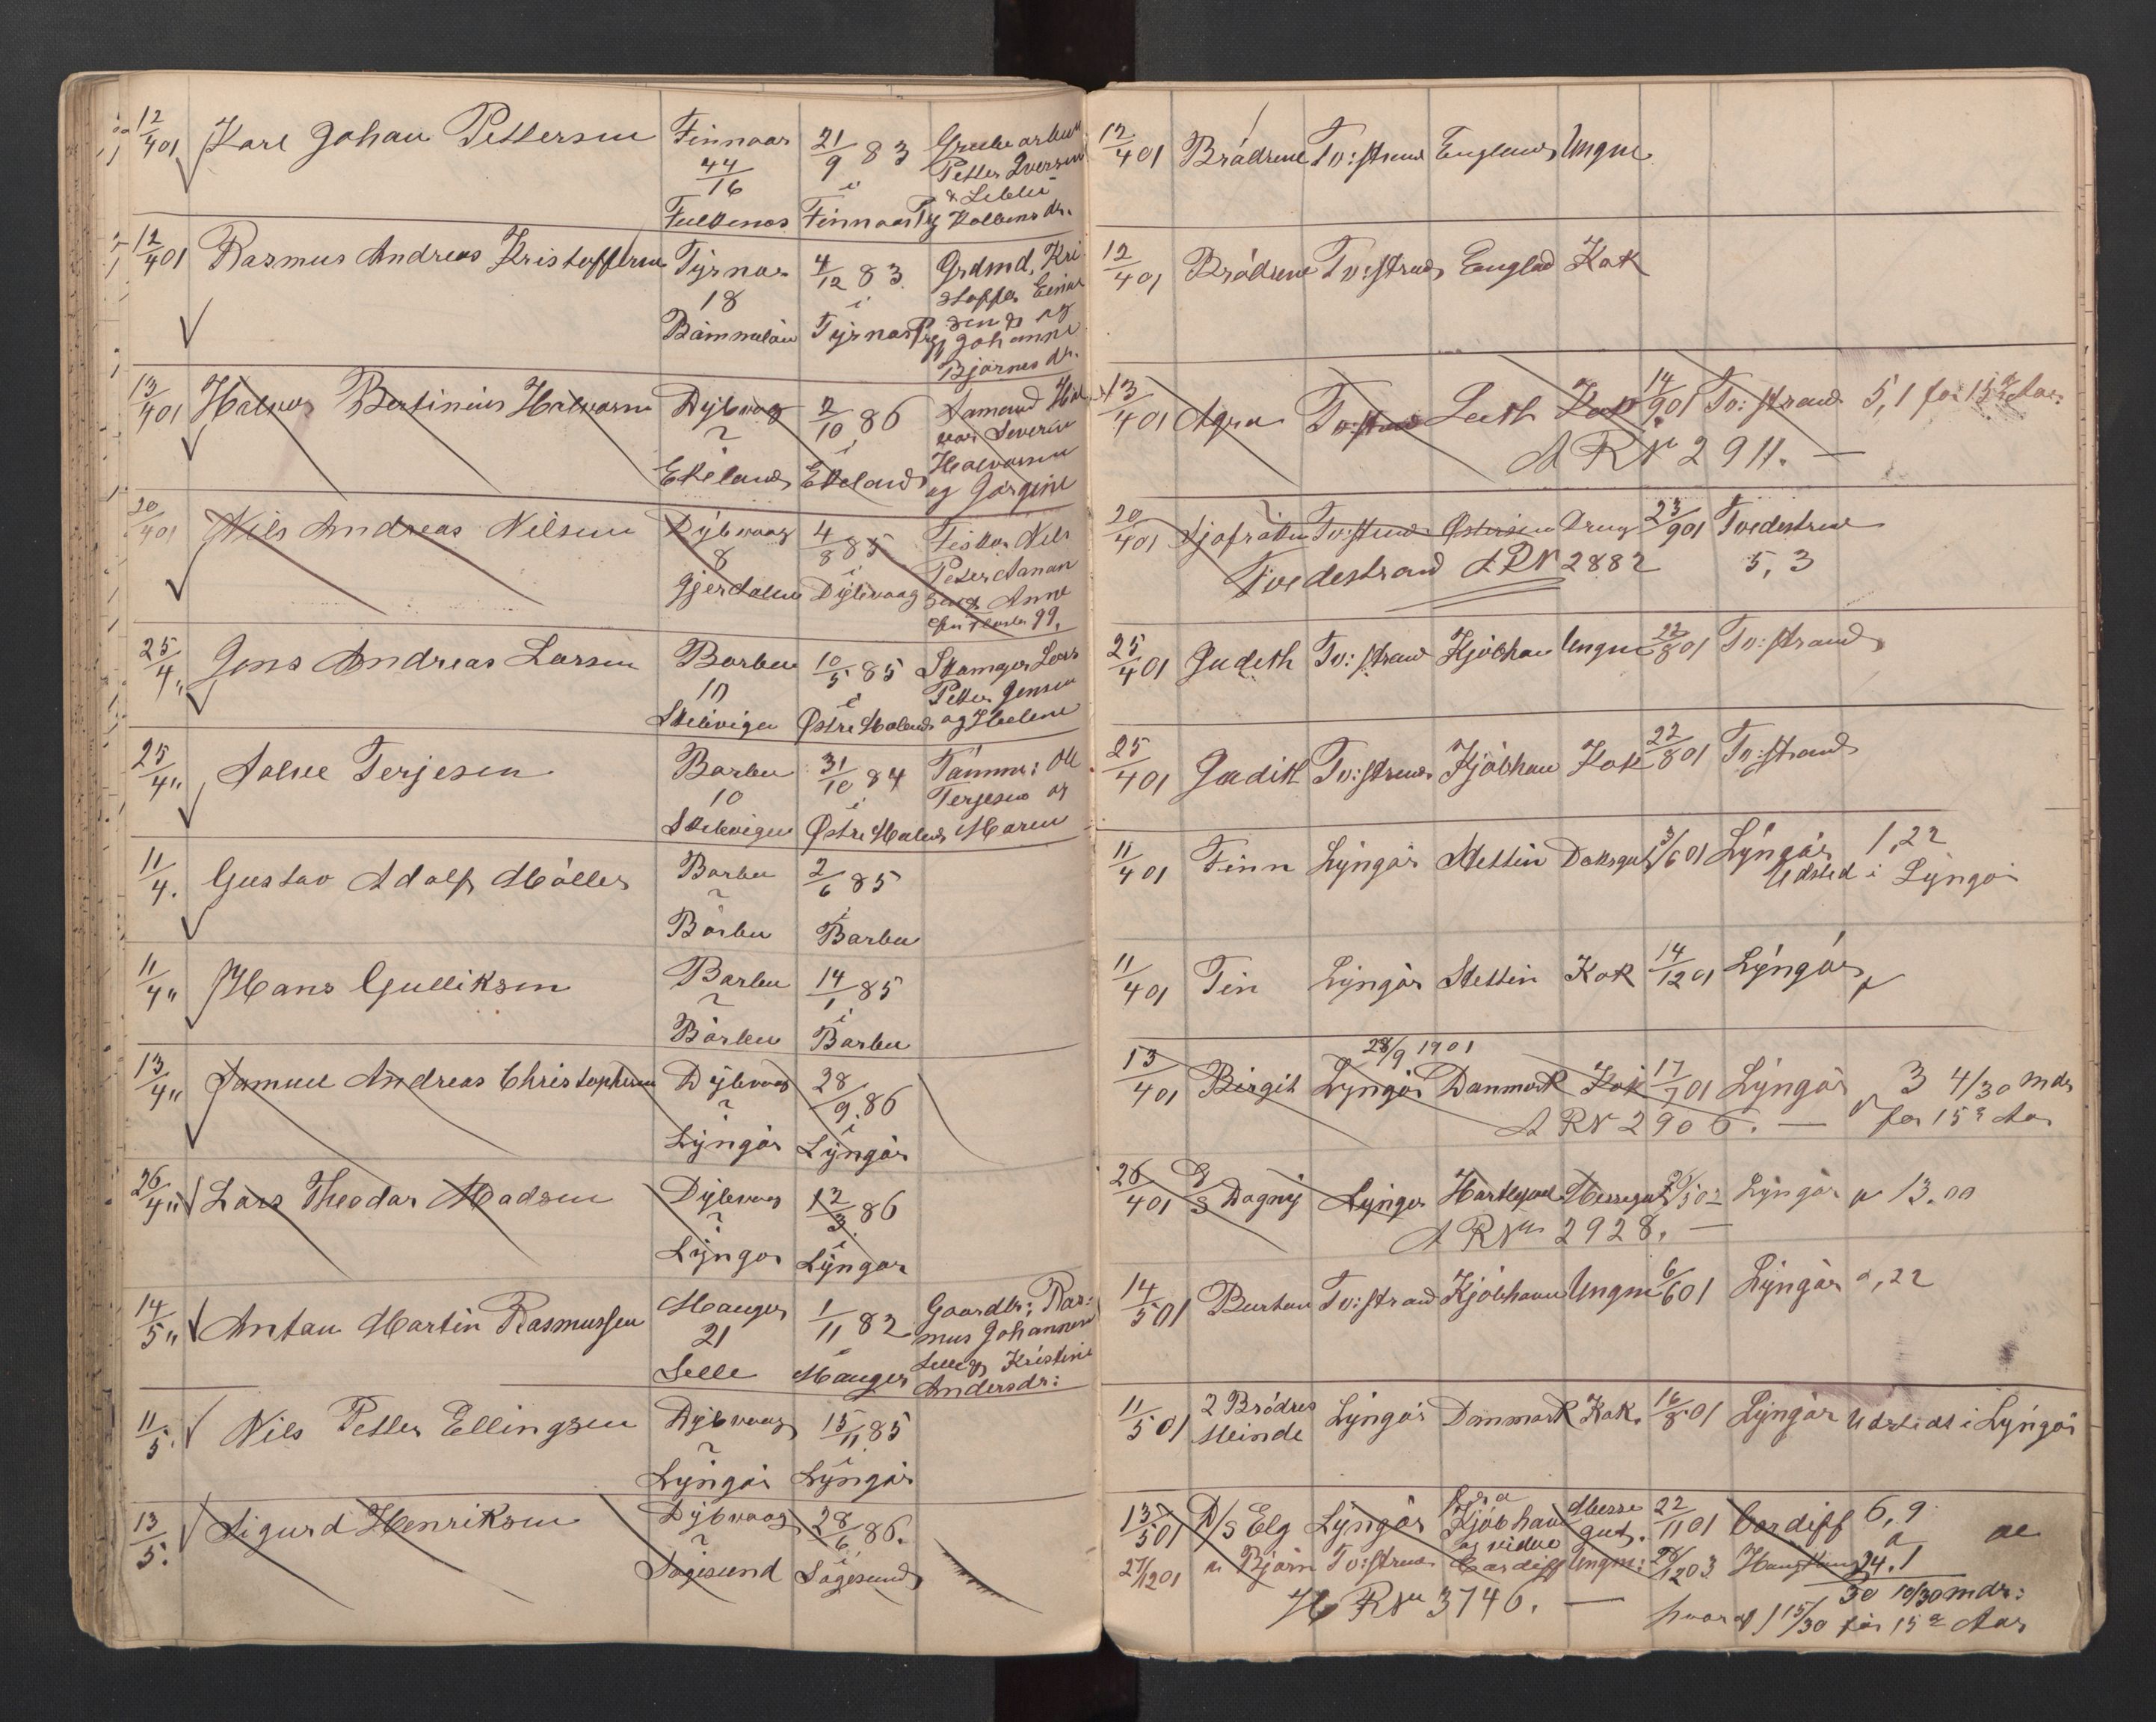 12/4 01 Karl Johan Pettersen Finnaas 21/9 83
44/16 i Petter Iversen
Finnaas Prgj
12/4 01 Rasmus Andreas Kristoffersen Fyrnas 4/12 83 Grdmd. Kri
18 i stoffer Einar
Bømmeløen Fyrnas Prgj sen & og
Johanne
Bjørnesdr.
13/4 01 Halvor Bertinius Halvorsen Dybvaag 2/10 86 Sømand Hal
? i vor Severin
Ekeland Ekeland Halvorsen
og Jørgine
20/4 01 Nils Andreas Nilsen Dybvaag 4/8 85 Fisker Nils
8 i Peter Aanon
Gjerdalen Dybvaag sen & Anne
25/4 " Jens Andreas Larsen Barbu 10/5 85 Lars
10 i Petter Jensen
Skilvigen Østre Moland og Helene
25/4 " Salve Terjesen Barbu 31/10 84 Tømmer: Ole
10 i Terjesen og
Skilevigen Østre Moland Maren
11/4. Gustav Adolf Møller Barbu 2/6 85
? i
Barbu Barbu
11/4 " Hans Gulliksen Barbu 14/1 85
? i
Barbu Barbu
13/4 " Samuel Andreas Christophersen Dybvaag 28/9. 86
? i
Lyngør Lyngør
26/4 " Lars Theodor Madsen Dybvaag 12/3. 86
? i
Lyngør Lyngør
14/5 " Anton Martin Rasmussen Manger 1/11 82 Gaardbr: Ras:
21 i mus Johannesen
Selle Manger Selle & Kristine
Andersdr:
11/5. Nils Petter Ellingsen Dybvaag 15/11 85
? i
Lyngør Lyngør
13/5. Sigurd Henriksen Dybvaag 28/6 86.
? i
Sagesund Sagesund
12/4 01 Brødrene Tv:strand England Ungm
12/4 01 Brødrene Tv:strand Englad Kok
13/4 01 Agra Tv:strand Leith Kok 14/9 01 Tv: strand 5,1 for 15de Aar
A R No 2911. —
20/4 01 Tv:strand Østersøen Dreng 23/9 01 Tvedestrand
Tvedestrand A R N 2882 5, 3
25/4 01 Judith Tv: strand Kjøbhavn Ungm 22/8 01 Tv: strand
25/4 01 Judith Tv:strand Kjøbhavn Kok 22/8 01 Tv:strand
11/4 01 Finn Lyngør Stettin Dæksgut 3/6 01 Lyngør 1,22
Udsted i Lyngør
11/4 01 Fin Lyngør Stettin Kok 14/12 01 Lyngør
28/9 1901
13/4 01 Birgit Lyngør Danmark Kok 17/7 01 Lyngør 3 4/30 mdr
A R N 2906. — for 15de Aar
26/4 01 D/S Dagny Lyngør Hartlepool Messegut Lyngør 13.00
A R No 2928. —
14/5 01 Burton Tv:strand Kjøbhavn Ungm 6/6 01 Lyngør 0,22
11/5 01 2 Brødres
Minde Lyngør Danmark Kok. 16/8 01 Lyngør Udstedt i Lyngør
13/5 01 D/S Elg Lyngør fra Kjøbhavn Messe gut. 22/11 01 Cardiff 6, 9
og videre
27/12 01 " Bjørn Tv:strand Cardiff Ungm: 28/12 03 24. 1
H R No 3746. — 30 10/30 mdr:
hvoraf 1 15/30 før 15de Aar